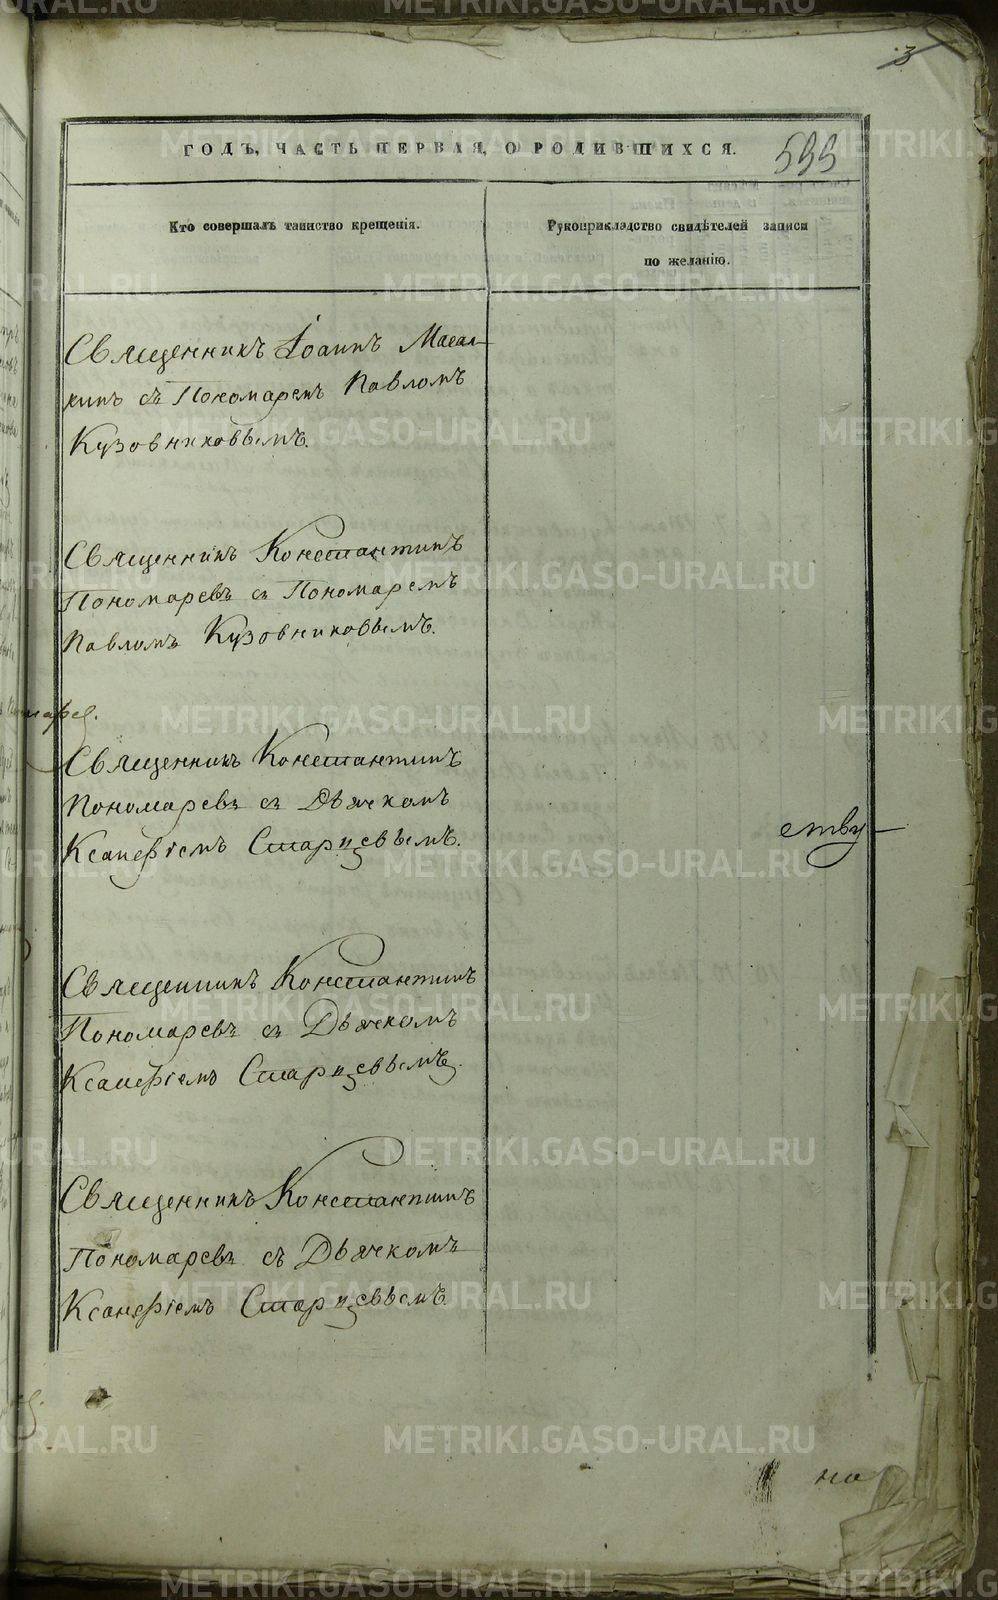 3
ГОДЪ, ЧАСТЬ ПЕРВАЯ, О РОДИВШИХСЯ.
599
Кто совершалъ таинство крещенія.
Рукоприкладство свидѣтелей записи
по желанію.
Священникъ Іоаннъ Масал-
кинъ съ Пономаремъ Павломъ
Кузовниковымъ.
Священникъ Константинъ
Пономаревъ съ Пономаремъ
Павломъ Кузовниковымъ.
Священникъ Константинъ
Пономаревъ съ Дьячкомъ
Ксанефіемъ Старцевымъ.
ству
Священникъ Константинъ
Пономаревъ съ Дьячкомъ
Ксанефіемъ Старцевымъ.
Священникъ Константинъ
Пономаревъ съ Дьячкомъ
Ксанефіемъ Старцевымъ.
на
METRIKI.GASO-URAL.RU